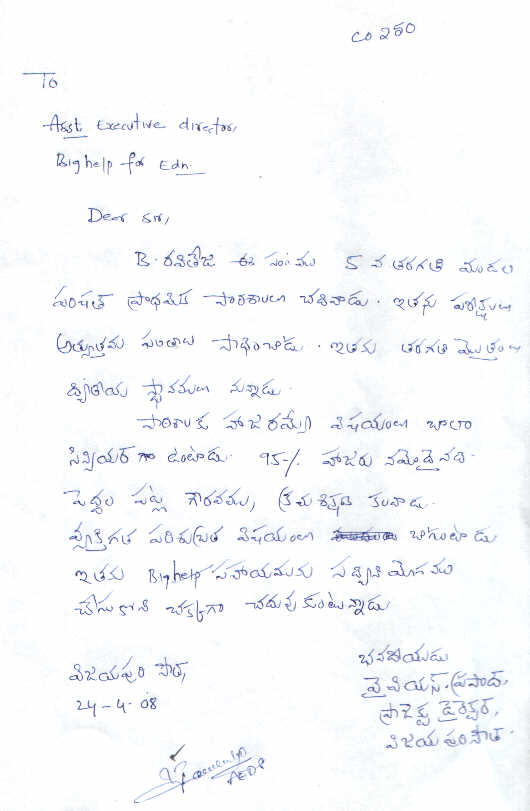 CO 250
To
Asst Executive director,
Big help for Edn.
Dear sir,
B. రవితేజ ఈ సంIIము 5 వ తరగతి మండల
పరిషత్ ప్రాథమిక పాఠశాలలో చదివాడు. ఇతను పరీక్షలలో
అత్యుత్తమ ఫలితాలు సాధించాడు. ఇతను తరగతి మొత్తంలో
ద్వితీయ స్థానములో నున్నాడు.
పాఠశాలకు హాజరయ్యే విషయంలో చాలా
సిన్సియర్ గా ఉంటాడు. 95-/. హాజరు నమోదైనది.
పెద్దల పట్ల గౌరవము, క్రమశిక్షణ కలవాడు.
వ్యక్తిగత పరిశుభ్రత విషయంలో బాగుంటాడు
ఇతను Big help సహాయమును సద్వినియోగము
చేసుకొని చక్కగా చదువుకుంటున్నాడు
భవదీయుడు
విజయపురి సౌత్,
వై వి యస్. ప్రసాద్,
24-4-08
ప్రాజెక్టు డైరెక్టర్,
విజయపురి సౌత్.
AEDP